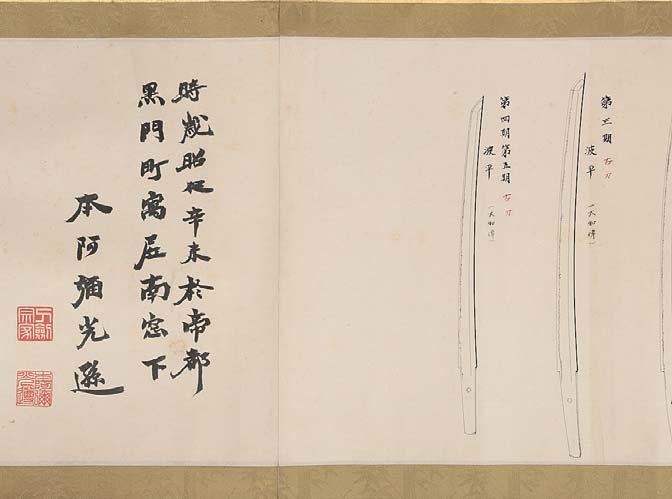 第三期 古刀
波平
(大和傳)
第四期第五期 古刀
波平
(大和傳)
時歳昭和辛未於帝都
黒門町寓居南窓下
本阿彌光遜